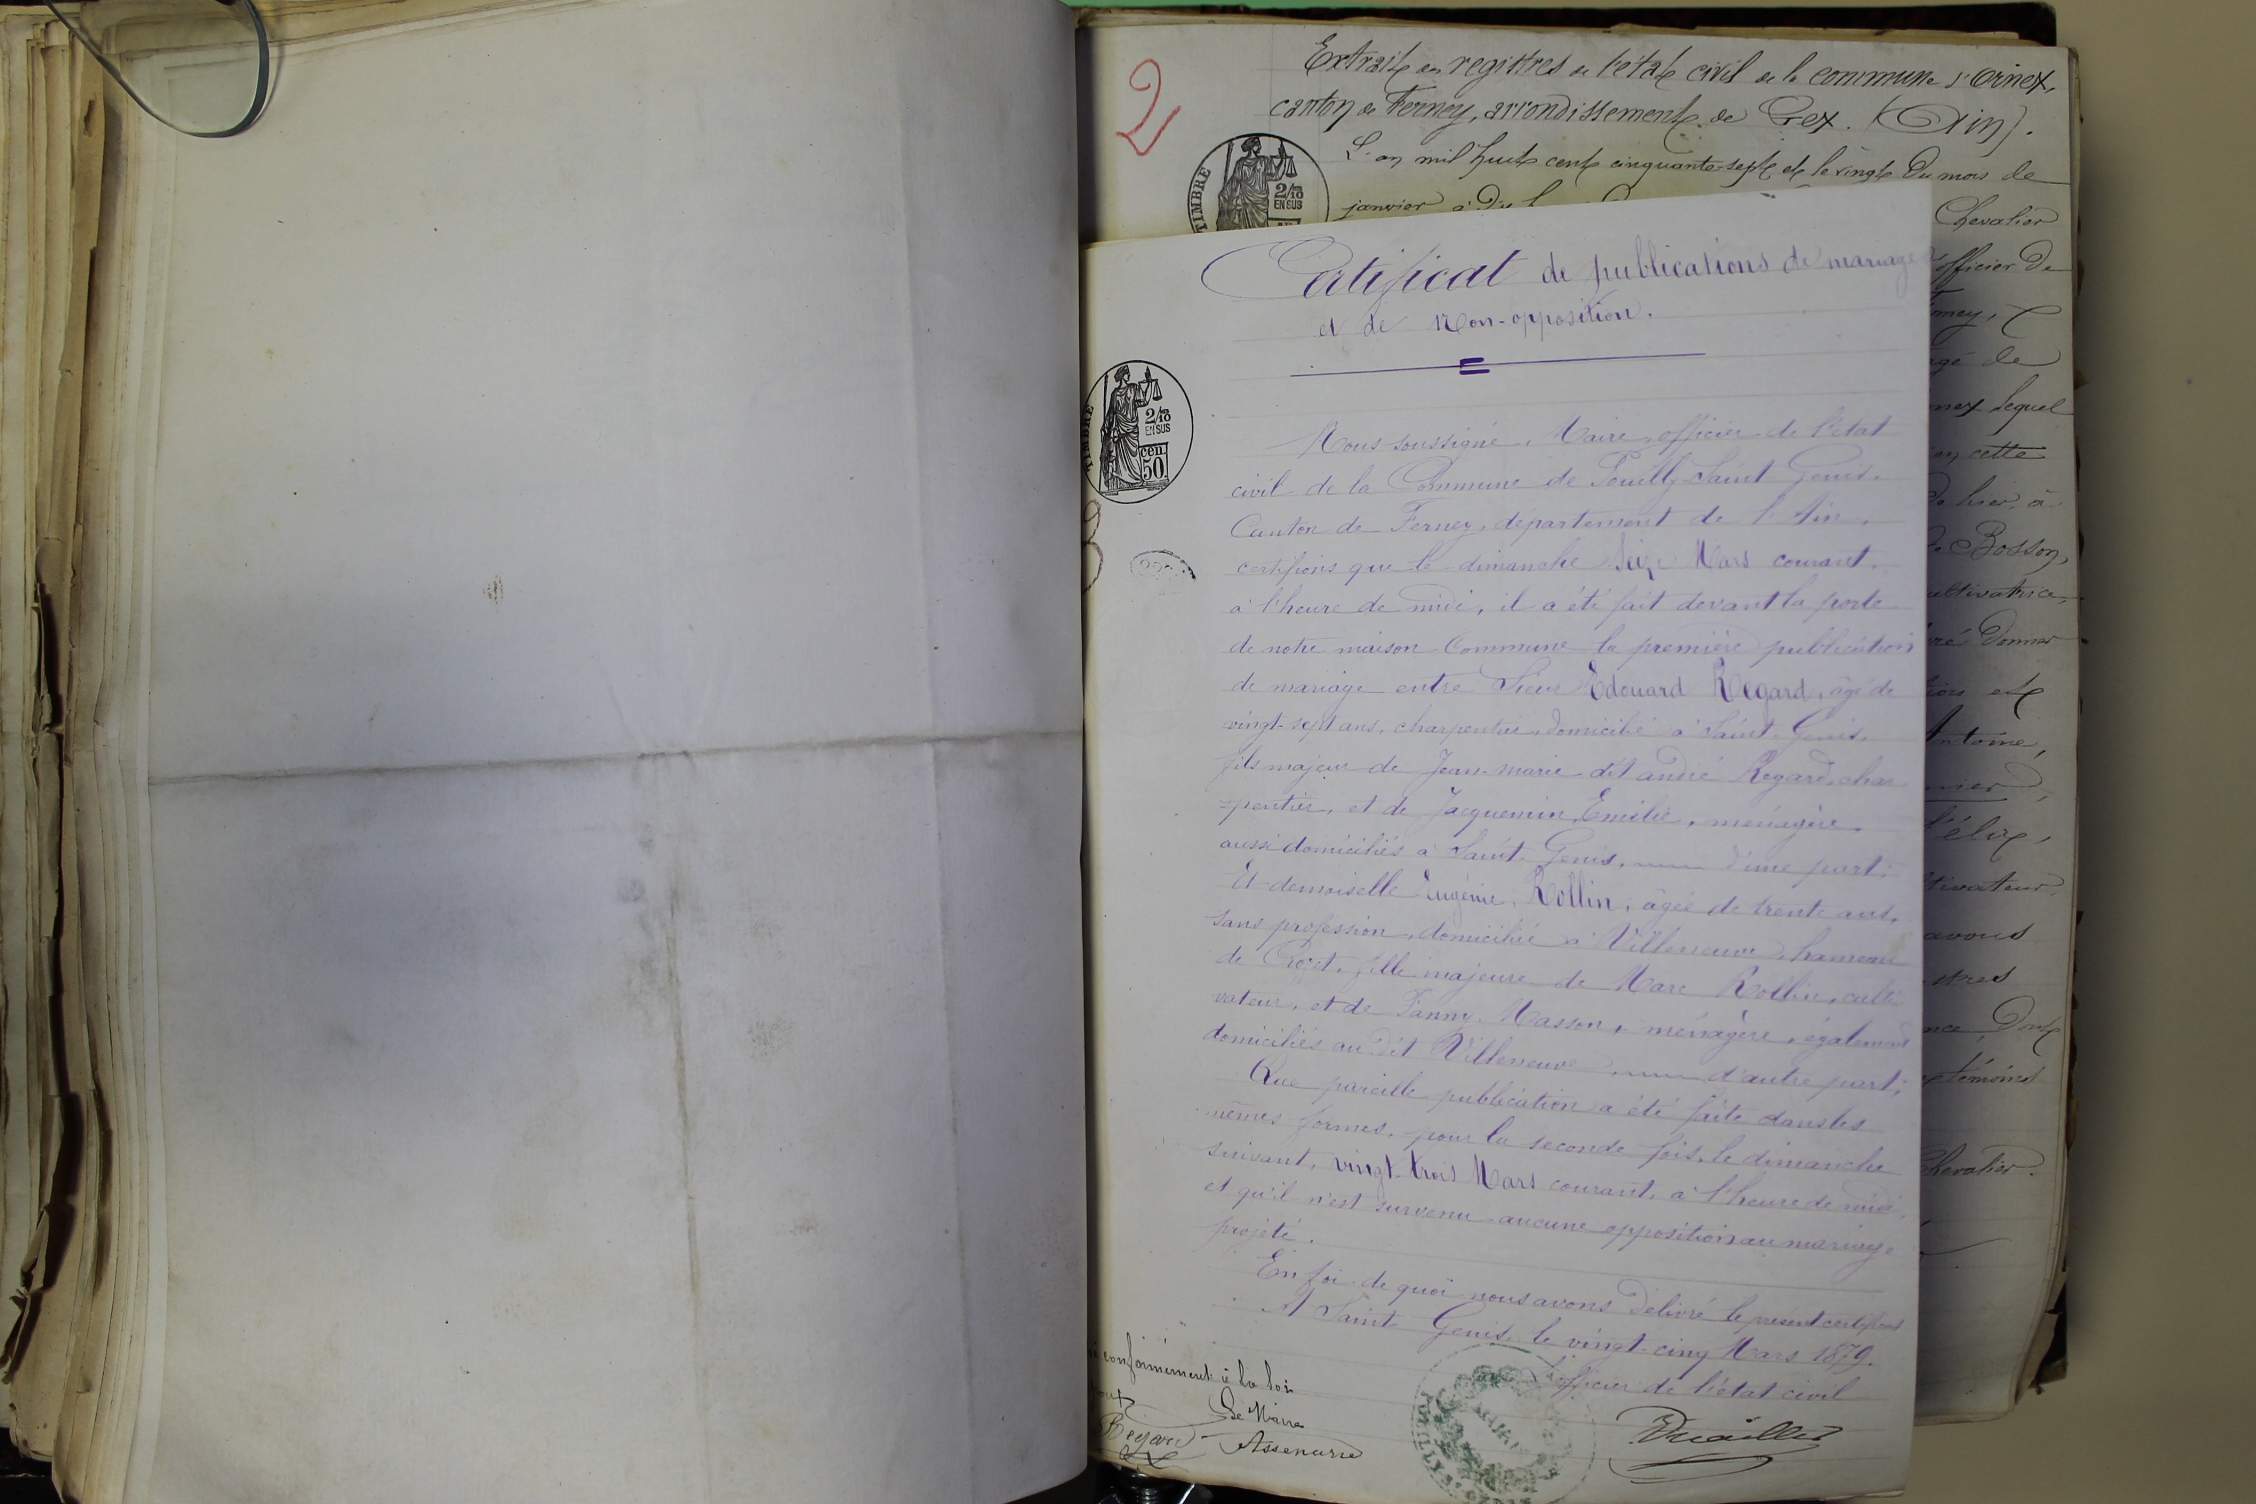 2
Extrait des registres de l'état civil de la commune d'Ornex,
canton de Ferney, arrondissement de Gex. (Ain).
L'an mil huit cent cinquante-sept et le vingt du mois de
janvier à
Chevalier
officier de
TIMBRE
2/10
EN SUS
lequel
en cette
Bosson,
donner
Antoine,
avons
dont
témoins
Chevalier.
Certificat de publications de mariage
et de Non-opposition.
TIMBRE
2/10
EN SUS
cen.
50.
Nous soussigné, Maire, officier de l'état
civil de la Commune de Pouilly Saint Genis,
Canton de Ferney, département de l'Ain,
certifions que le dimanche Seize Mars courant,
à l'heure de midi, il a été fait devant la porte
de notre maison Commune la première publication
de mariage entre Sieur Edouard Regard, âgé de
vingt-sept ans, charpentier, domicilié à Saint-Genis,
fils majeur de Jean-marie dit andré Regard, char
-pentier, et de Jacquemin, Emélie, ménagère,
aussi domiciliés à Saint-Genis, d'une part;
Et demoiselle Eugénie, Rollin, âgée de trente ans,
sans profession, domiciliée à Villeneuve, hameau
de Crozet, fille majeure de Marc Rollin, culti
vateur, et de Fanny Masson, ménagère, également
domiciliés au dit Villeneuve, d'autre part;
Que pareille publication a été faite dans les
mêmes formes, pour la seconde fois, le dimanche
suivant, vingt-trois Mars courant, à l'heure de midi,
et qu'il n'est survenu aucune opposition au mariage
projeté.
En foi de quoi nous avons délivré le présent certificat
A Saint-Genis, le vingt-cinq Mars 1879.
L'officier de l'état civil
conformément à la loi
Le Maire
Regard